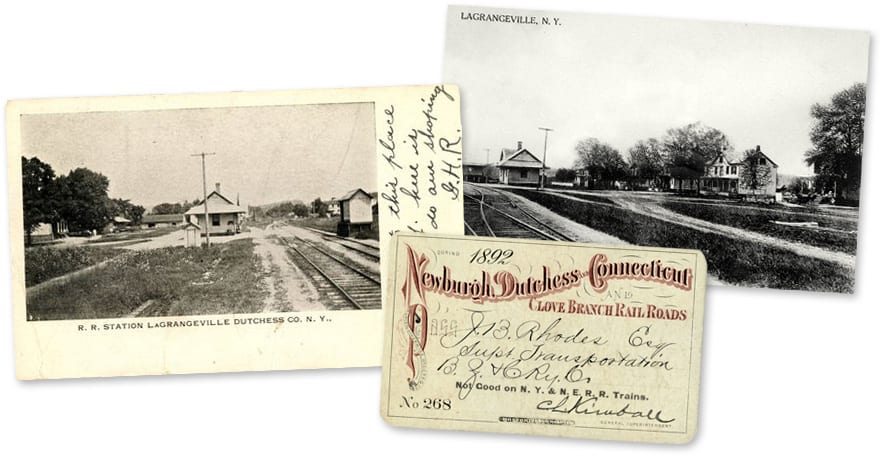 LAGRANGEVILLE, N. Y.
this place
here is
do our shoping
G.H.R.
R. R. STATION LAGRANGEVILLE DUTCHESS CO. N. Y.,
DURING 1892
Newburgh, Dutchess and Connecticut
AND
CLOVE BRANCH RAIL ROADS
Pass J. B. Rhodes Esq
Supt Transportation
B. Z. & C Ry. Co
Not Good on N. Y. & N. E. R. R. Trains.
No 268
C L Kimball
GENERAL SUPERINTENDENT